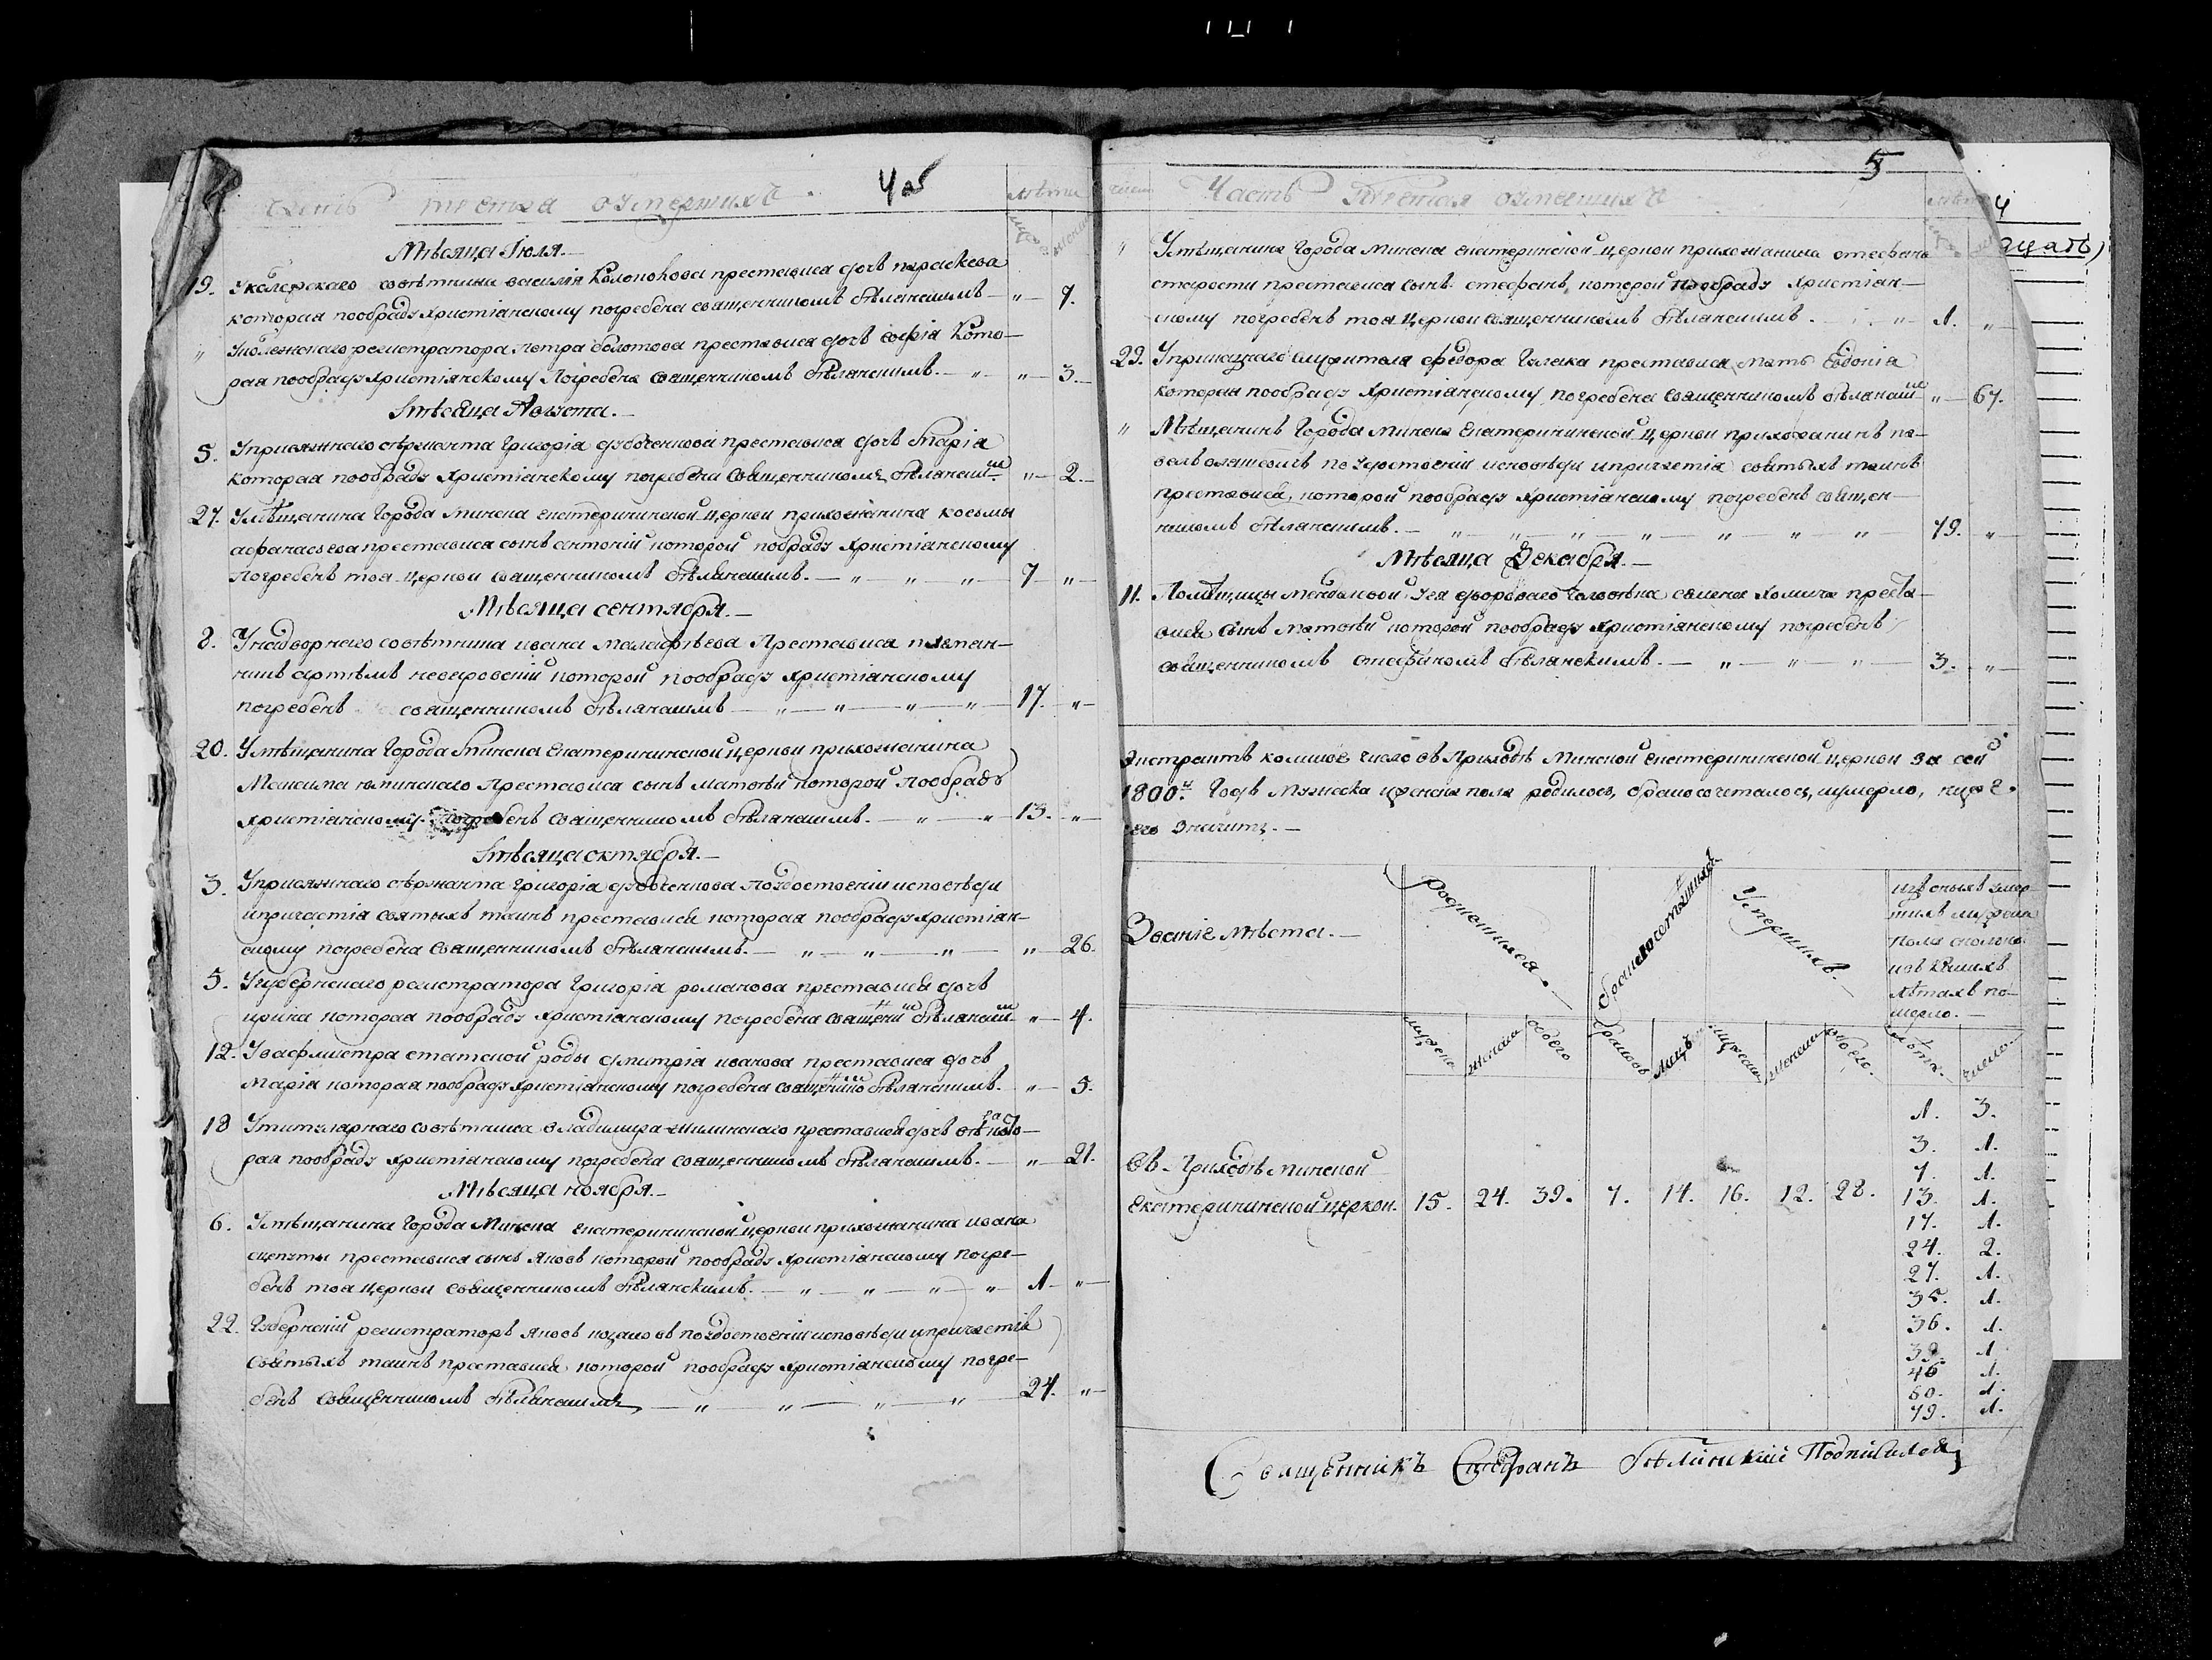 4 об
Часть третья о умерших
лета
Месяца Июля.
19. У колежскаго советника василия Колонокова преставися дочь параскева
которая пообряду христианскому погребена священником белянским — " — 7.
" У колежскаго регистратора петра болотова преставися дочь софиа Кото-
рая пообряду христианскому Погребена священником белянским. — " — " — 3.
Месяца Августа.
5. У присяжнаго сержанта григориа дробченкова преставися дочь Мариа
которая пообряду христианскому погребена священником белянским " — 2.
27. У мещанина города Минска екатерининской церкви прихожанина косьмы
афанасьева преставися сын антоний которой пообряду христианскому
Погребен тоя церкви священником белянским. — " " " — 7 — "
Месяца сентября.
8. У надворнаго советника ивана малафеева Преставися племян-
ник артем неверовский которой пообряду христианскому
погребен священником белянским — " — " — " — " — 17. — "
20. У мещанина города Минска екатерининской церкви прихожанина
Максима Преставися сын матфей которой Пообряду
христианскому погребен священником белянским. — " — " 13. — "
Месяца октября.
3. У присяжнаго сержанта григориа дробченкова по удостоении исповеди
и причастиа святых таин преставися которая пообряду христиан-
скому погребена священником белянским. — " — " — " — " — 26.
5. У губернскаго регистратора Григориа романова преставися дочь
ирина которая пообряду христианскому погребена священ белянским " — 4.
12. У вафлмистра статской роты дмитриа иванова преставися дочь
Мариа которая пообряду христианскому погребена священ белянским. — " — 5.
18 У титулярнаго советника владимира преставися дочь кото-
рая пообряду христианскому погребена священником белянским. — " — 21.
Месяца ноября.
6. У мещанина города Минска екатерининской церкви прихожанина ивана
преставися сын Яков которой пообряду христианскому погре-
бен тоя церкви священником белянским. — " — " — " — " 1 — "
22. Губернский регистратор Яков по удостоении исповеди и причастиа
святых таин преставися которой пообряду христианскому погре-
бен священником белянским — " — " — " — " — 24. "
5
Часть Третья о умерших
" У мещанина города Минска екатерининской церкви прихожанина стефана
старости преставися сын стефан, которой пообряду христиан-
скому погребен тоя церкви священником белянским. — " — 1. "
29. У приказнаго служителя федора преставися мать Евдокиа
которая пообряду христианскому погребена священником белянским " — 67.
" Мещанин города Минска екатерининской церкви прихожанин па-
вел по удостоении исповеди и причастиа святых таин
преставися, которой пообряду христианскому погребен священ-
ником белянским. — " — " — " — " — " — " — " — 79. "
Месяца Декабря.
11. Помещицы ея двороваго человека семена хомича преста-
вися сын матфей которой пообряду христианскому погребен
священником стефаном белянским. — " — " — " — 3. — "
Экстракт коликое число в Приходе Минской екатерининской церкви за сей
1800й Год Мужеска и женска пола родилось, бракосочеталось, и умерло,
его значит. —
Звание места. —
Родившихся.
бракосочетавшихся
Умерших.
из оных умер-
ших мужеска
пола сколько
и в каких
летах по-
мерло. —
мужеска женска обоего браков лиц мужеска женска обоего лета. число
В Приходе Минской
Екатерининской церкви. 15. 24. 39. 7. 14. 16. 12. 28.
1. 3.
3. 1.
7. 1.
13. 1.
17. 1.
24. 2.
27. 1.
35. 1.
36. 1.
39. 1.
46 1.
60. 1.
79. 1.
Священникъ Стефанъ Белянский Подписался